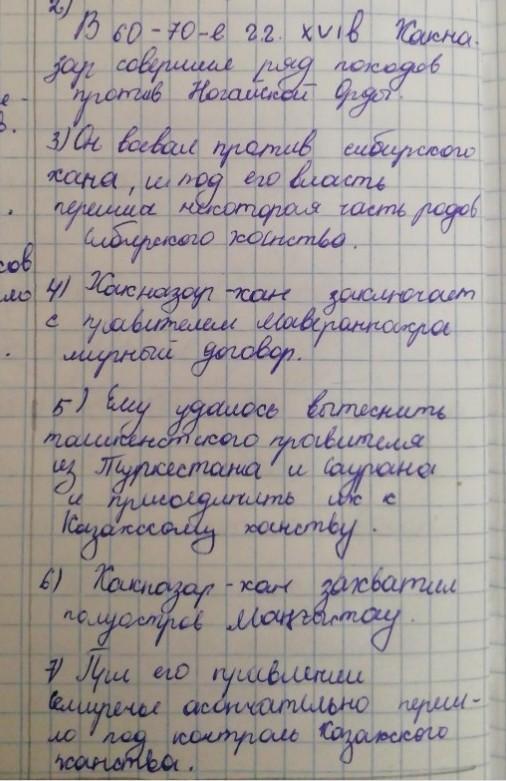 2)
В 60-70-е г.г. XVI в Хакна-
зар совершил ряд походов
против Ногайской Орды.
3) Он воевал против сибирского
хана, и под его власть
перешла некоторая часть родов
Сибирского ханства.
4) Хакназар-хан заключает
с правителем Мавераннахра
мирный договор.
5) Ему удалось вытеснить
ташкентского правителя
из Туркестана и Саурана
и присоединить их к
Казахскому ханству.
6) Хакназар-хан захватил
полуостров Маңғыстау.
7) При его правлении
Семиречье окончательно переш-
ло под контроль Казахского
ханства.
е-
в.
.
сов
мо
.